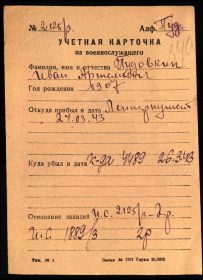 № 2125р. Алф. Пуд.
УЧЕТНАЯ КАРТОЧКА
на военнослужащего
Фамилия, имя и отчество Пудовкин
Иван Артемович
Год рождения 1907
Откуда прибыл и дата
24.03.43
Куда убыл и дата 4489 26.3.43
Основание записей И.С. 2125/р-2р.
И.С 1889/3 2р
Тип. № 1.